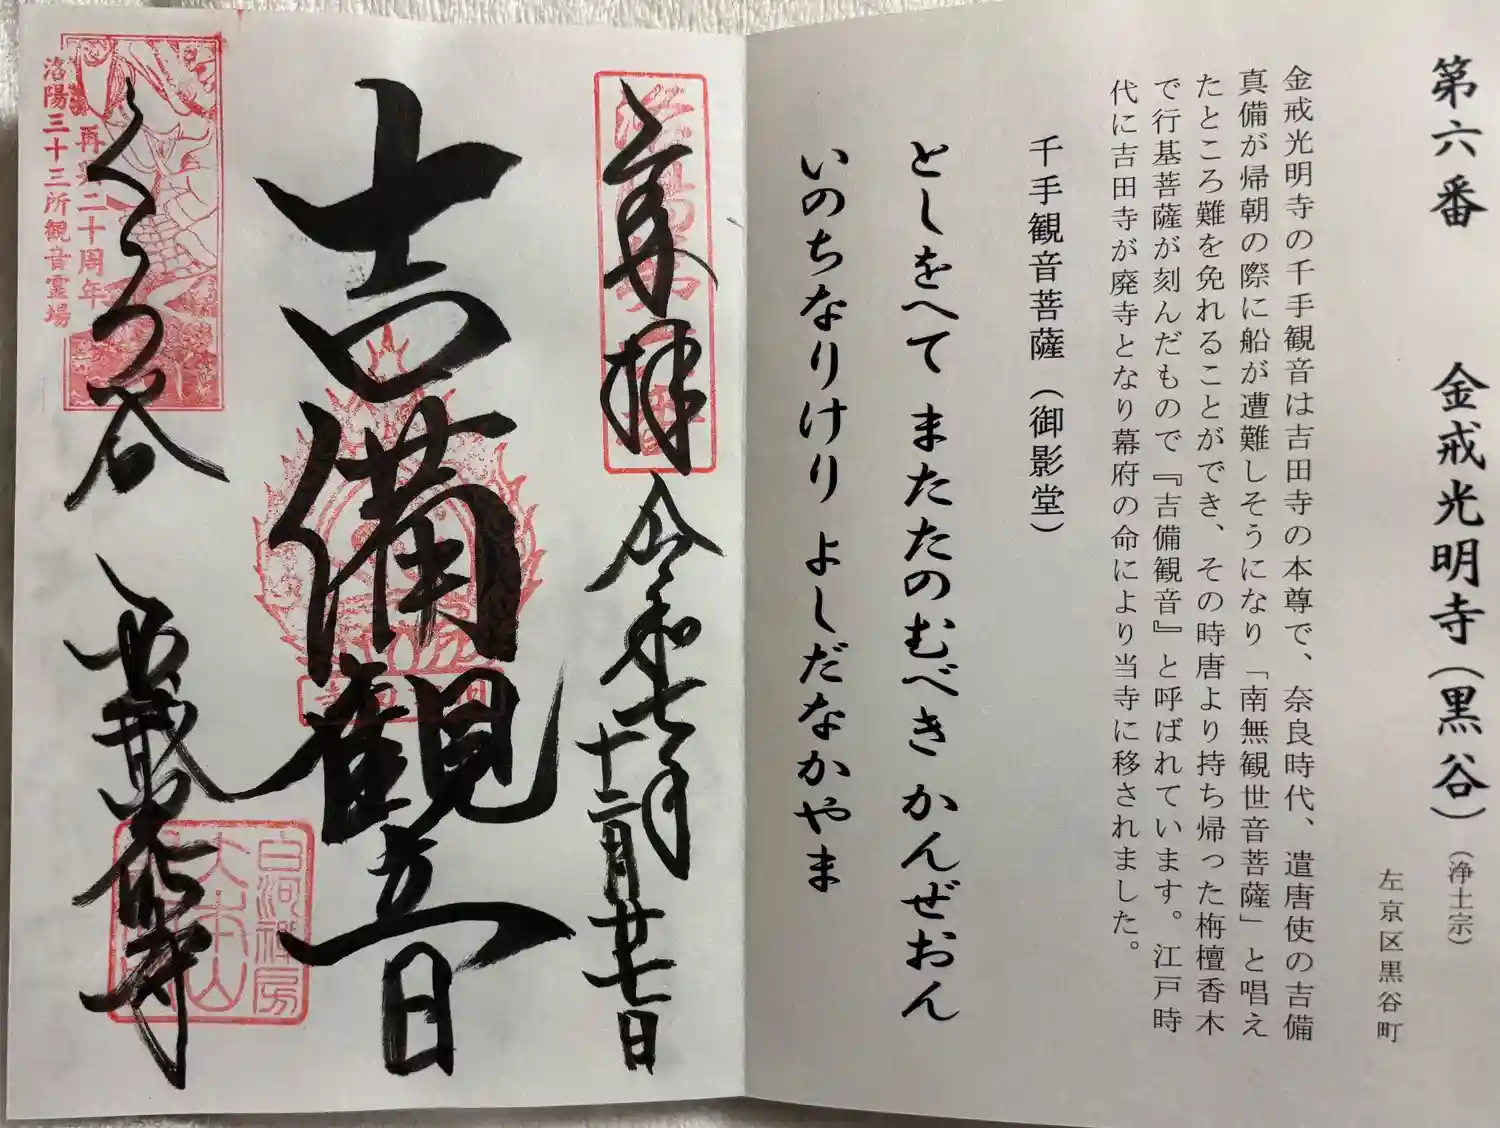 第六番　金戒光明寺（黒谷）（浄土宗）
左京区黒谷町
金戒光明寺の千手観音は吉田寺の本尊で、奈良時代、遣唐使の吉備
真備が帰朝の際に船が遭難しそうになり「南無観世音菩薩」と唱え
たところ難を免れることができ、その時唐より持ち帰った栴檀香木
で行基菩薩が刻んだもので『吉備観音』と呼ばれています。江戸時
代に吉田寺が廃寺となり幕府の命により当寺に移されました。
千手観音菩薩（御影堂）
としをへて またたのむべき かんぜおん
いのちなりけり よしだなかやま
奉拝 令和七年十二月廿七日
吉備観音
くろ谷 金戒光明寺
再興二十周年
洛陽三十三所観音霊場
白河禅房
大本山